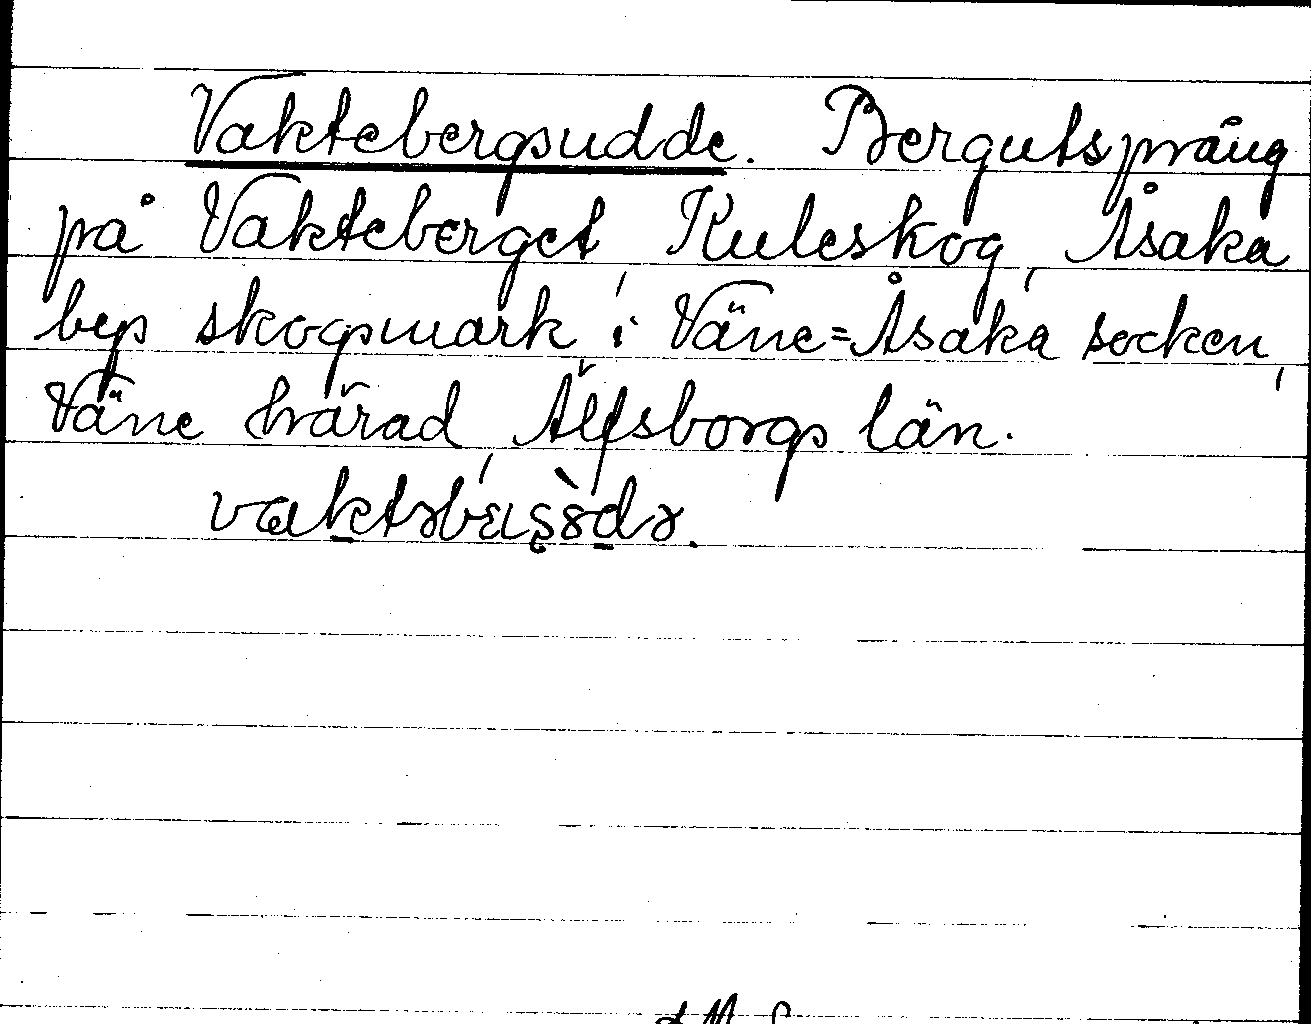 Vaktebergsudde. Bergutspräng
på Vakteberget, Kuleskog, Åsaka
bys skogsmark i Väne=Åsaka socken,
Väne härad, Älfsborgs län.